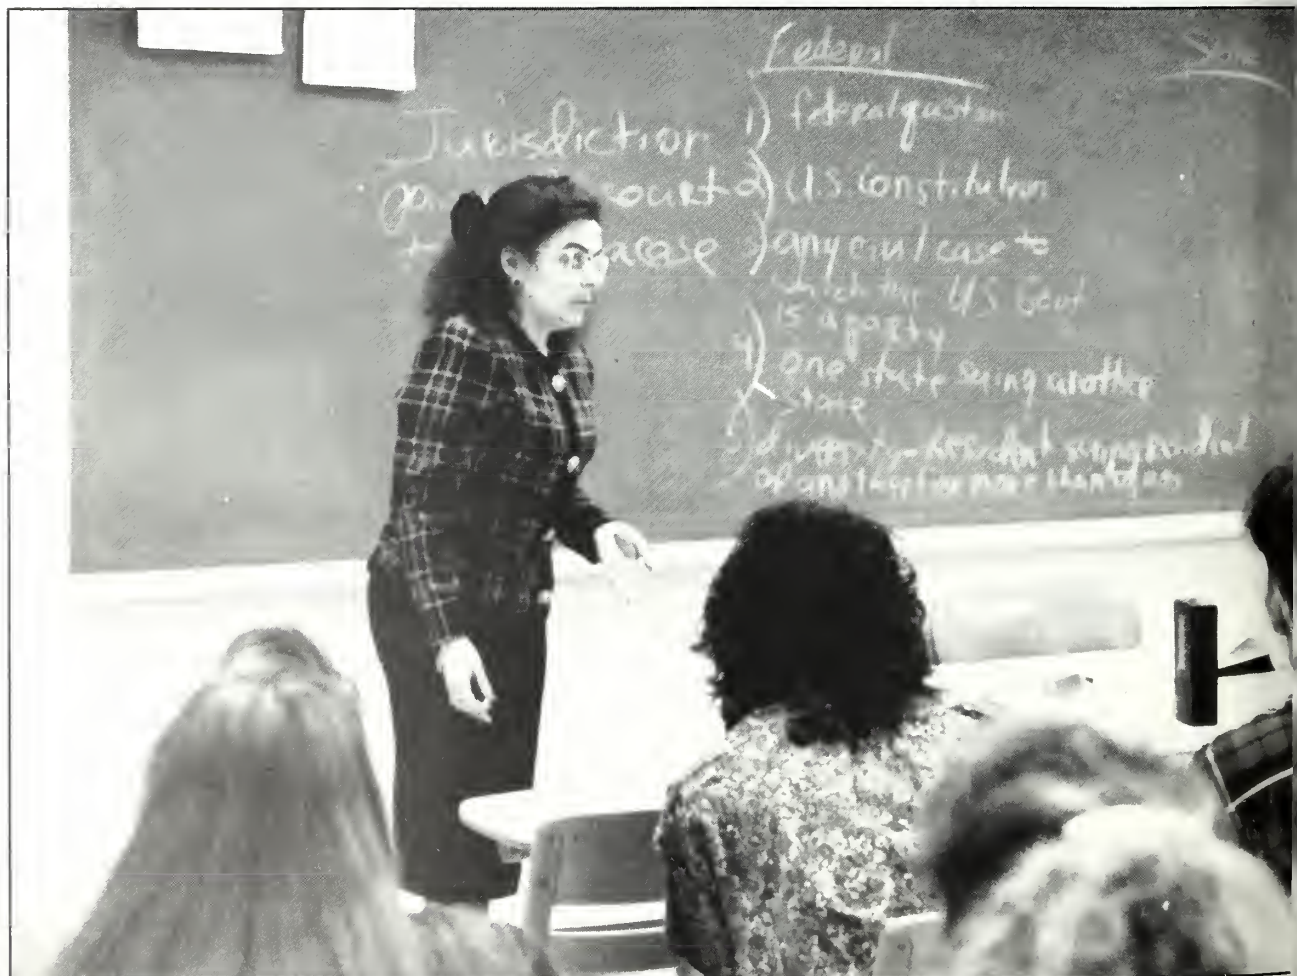 Federal
State
Jurisdiction
court
a case
1) federal question
2) U.S. Constitution
3) any civil case to
which the U.S. Govt
is a party
4) one state suing another
state
5) diversity - resident suing resident
of another for more than